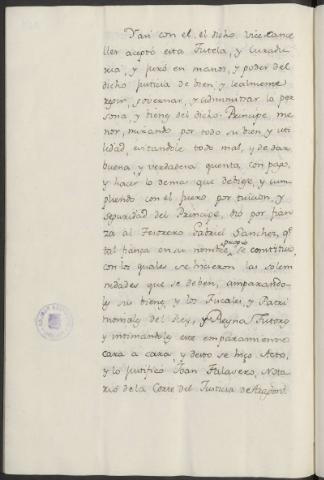 Y asi con el, el dicho Vicecance
ller aceptó esta Tutela, y Curadu
ria, y juró en manos, y poder del
dicho Justicia de bien, y lealmente
regir, governar, y administrar la per
sona, y bienes del dicho Principe, me
nor, mirando por todo su bien, y uti
lidad, evitandole todo mal, y de dar
buena, y verdadera quenta, con pago,
y hacer lo demas que debiese, y cum
pliendo con el fuero por tuicion, y
seguridad del Principe, dió por fian
za al Tesorero Gabriel Sanchez, qe
tal fianza en su nombre propio se constituió,
con lo quales se hicieron las solem
nidades que se deben, amparando
le sus bienes, y los Fiscales, y Patri
moniales del Rey, y Reyna Tutores
y intimandoles este emparamiento
cara a cara, y desto se hizo Acto,
y lo testificó Joan Falavero, Nota
rio de la Corte del Justicia de Aragon.